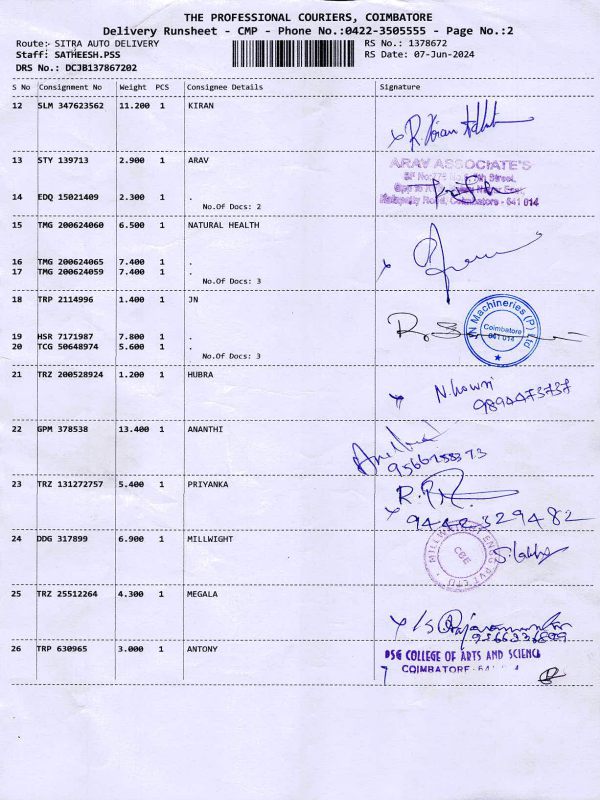 THE PROFESSIONAL COURIERS, COIMBATORE
Delivery Runsheet - CMP - Phone No.:0422-3505555 - Page No.:2
Route: SITRA AUTO DELIVERY
RS No.: 1378672
Staff: SATHEESH.PSS
RS Date: 07-Jun-2024
DRS No.: DCJB137867202
S No Consignment No Weight PCS Consignee Details Signature
12 SLM 347623562 11.200 1 KIRAN
R. Kiran
13 STY 139713 2.900 1 ARAV
ARAV ASSOCIATE'S
Street.
14 EDQ 15021409 2.300 1 .
Road, Coimbatore - 641 014
No.Of Docs: 2
15 TMG 200624060 6.500 1 NATURAL HEALTH
16 TMG 200624065 7.400 1 .
17 TMG 200624059 7.400 1 .
No.Of Docs: 3
18 TRP 2114996 1.400 1 JN
JN Machineries (P) Ltd
Coimbatore
641 014
19 HSR 7171987 7.800 1 .
20 TCG 50648974 5.600 1 .
No.Of Docs: 3
21 TRZ 200528924 1.200 1 HUBRA
9894473737
22 GPM 378538 13.400 1 ANANTHI
23 TRZ 131272757 5.400 1 PRIYANKA
9442329482
24 DDG 317899 6.900 1 MILLWIGHT
CBE
25 TRZ 25512264 4.300 1 MEGALA
26 TRP 630965 3.000 1 ANTONY
PSG COLLEGE OF ARTS AND SCIENCE
COIMBATORE